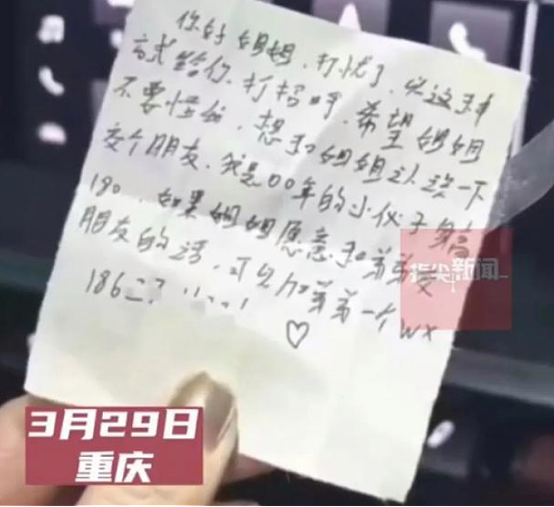 你好姐姐，打扰了，以这种
方式给你打招呼，希望姐姐
不要怪我，想和姐姐认识一下
交个朋友，我是00年的小伙子身高
180，如果姐姐愿意和弟弟交
朋友的话，可以加弟弟一个wx
186
指尖新闻
3月29日
重庆